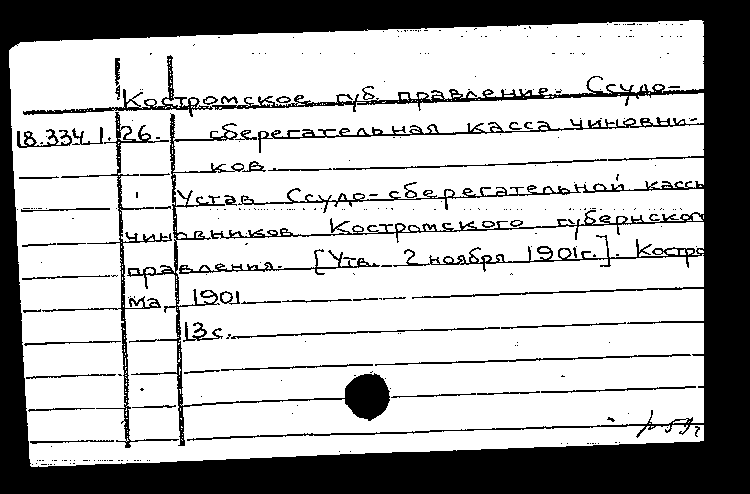 Костромское губ. правление. Ссудо-
18.334.1.26. сберегательная касса чиновни-
ков.
Устав Ссудо-сберегательной кассы
чиновников Костромского губернског
правления. [Утв. 2 ноября 1901г.]. Костро
ма, 1901
13 с.